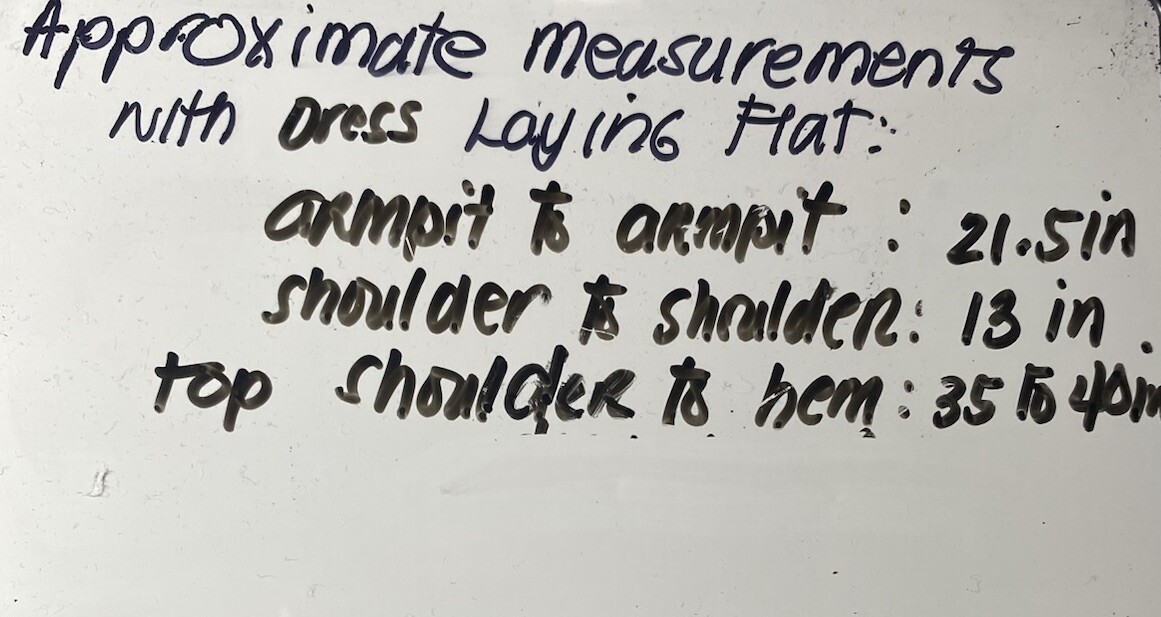 Approximate measurements
with Dress Laying Flat:
armpit to armpit : 21.5in
shoulder to shoulder: 13 in.
top shoulder to hem: 35 to 40in